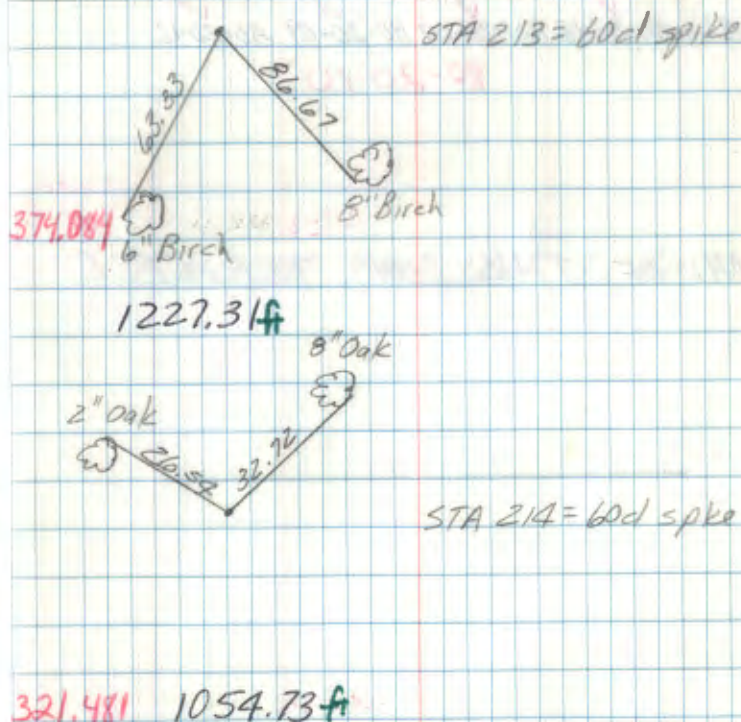 STA 213 = 60d spike
63.33
86.67
8" Birch
374.084
6" Birch
1227.31 ft
8" Oak
2" Oak
26.54
32.72
STA 214 = 60d spke
321.481 1054.73 ft